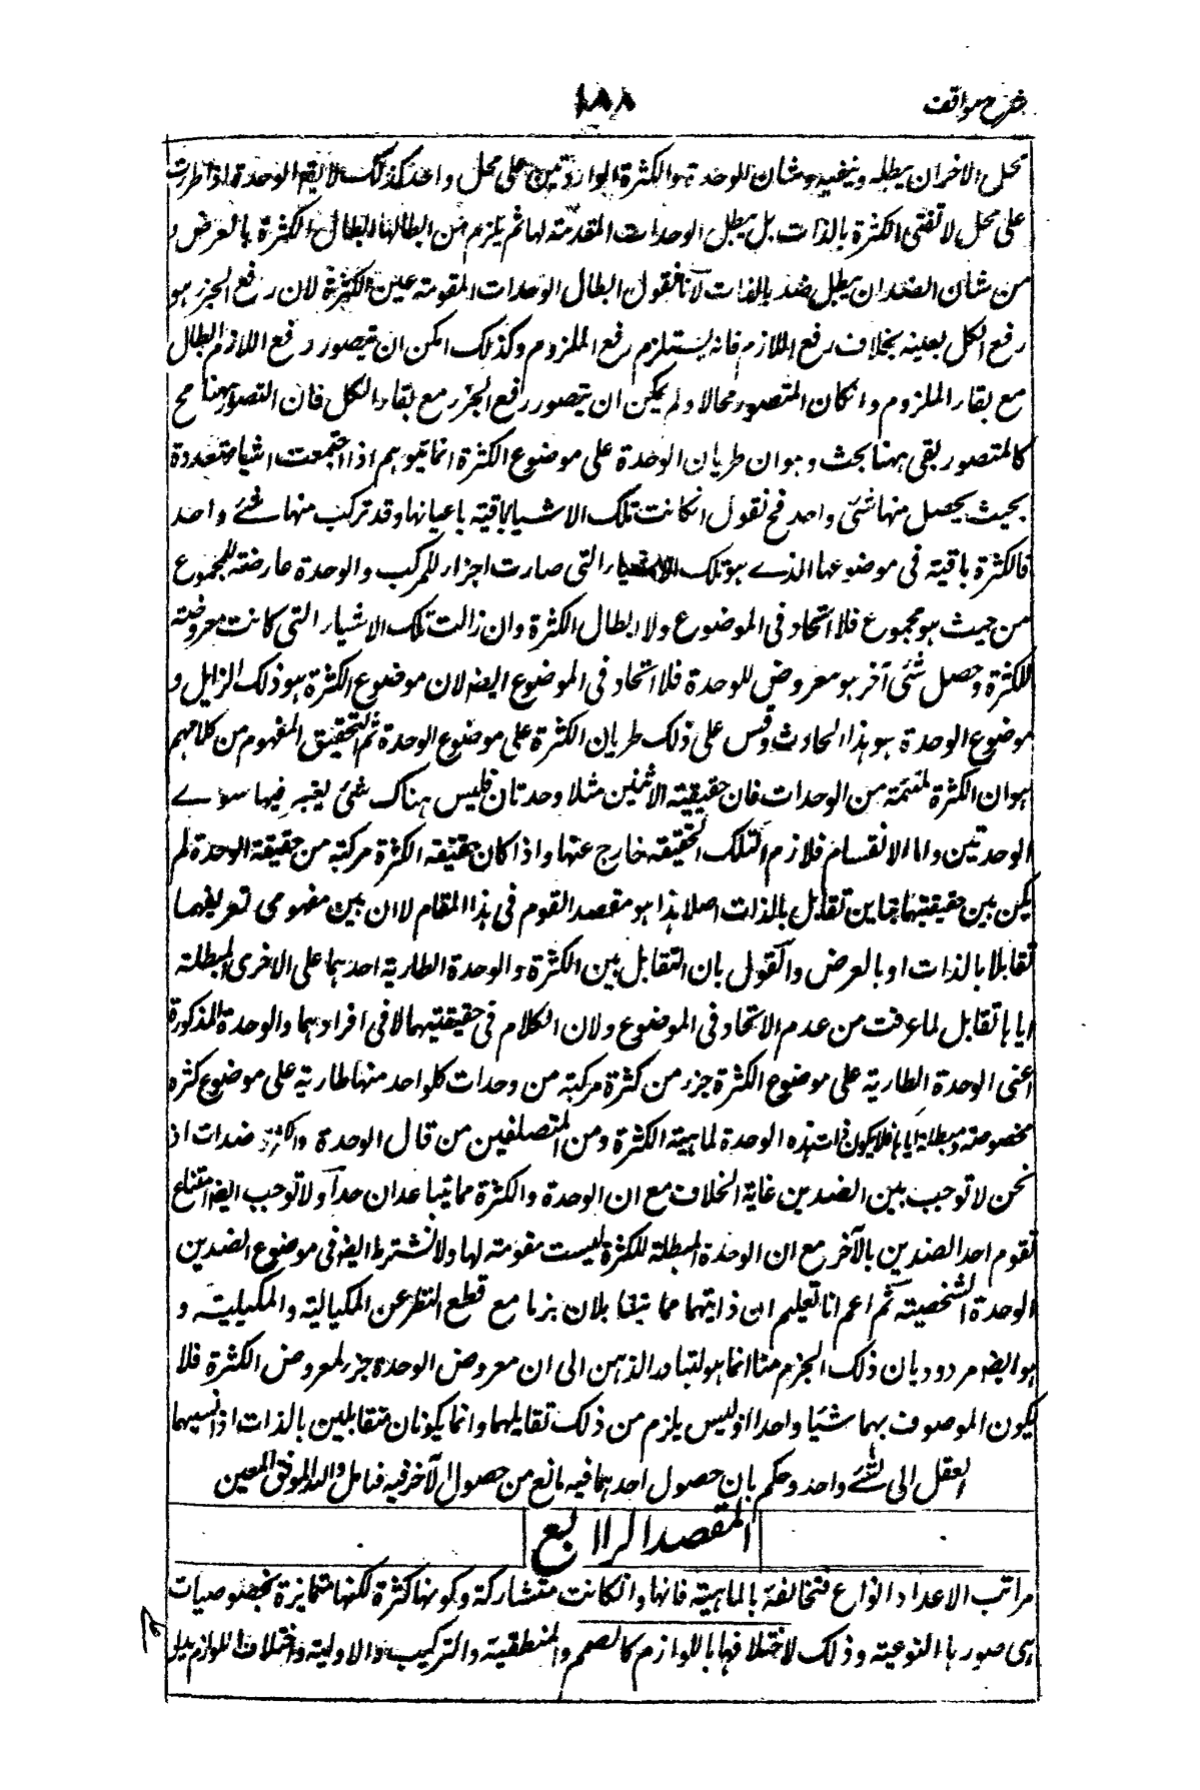 شرح مواقف
١٨٨
محل الاخران يبطله وينفيه وشان الوحدة والكثرة الواردتين على محل واحد كذلك لا يقال الوحدة اذا طرت
على محل لا تفنى الكثرة بالذات بل يبطل الوحدات المقدمة لها ثم يلزم من ابطالها ابطال الكثرة بالعرض و
من شان الضد ان يبطل ضده بالذات لانا نقول ابطال الوحدات المقومة عين الكثرة لان رفع الجزء هو
رفع الكل بعينه بخلاف رفع اللازم فانه يستلزم رفع الملزوم وكذلك امكن ان يتصور رفع اللازم ابطال
مع بقاء الملزوم وانكان المتصور محالا ولم يمكن ان يتصور رفع الجزء مع بقاء الكل فان التصور ههنا مح
كالمتصور بقى ههنا بحث وهو ان طريان الوحدة على موضوع الكثرة انما يتوهم اذا اجتمعت اشياء متعددة
بحيث يحصل منها شئ واحد فح نقول انكانت تلك الاشياء باقية باعيانها وقد تركب منها شئ واحد
فالكثرة باقية فى موضوعها الذے هو تلك الاشياء التى صارت اجزاء للمركب والوحدة عارضة للمجموع
من حيث هو مجموع فلا اتحاد فى الموضوع ولا ابطال الكثرة وان زالت تلك الاشياء التى كانت معروضة
للكثرة وحصل شئ آخر هو معروض للوحدة فلا اتحاد فى الموضوع ايضا لان موضوع الكثرة هو ذلك الزايل و
موضوع الوحدة هو هذا الحادث وقس على ذلك طريان الكثرة على موضوع الوحدة ثم التحقيق المفهوم من كلامهم
هو ان الكثرة ملتئمة من الوحدات فان حقيقية الاثنين مثلا وحدتان فليس هناك شئ يغبر فيها سوے
الوحدتين واما الانقسام فلازم لتلك الحقيقة خارج عنها واذا كان حقيقة الكثرة مركبة من حقيقة الوحدة لم
يكن بين حقيقتيهما تباين تقابل بالذات اصلا هذا هو مقصد القوم فى هذا المقام لا ان بين مفهومى تعريفهما
تقابلا بالذات او بالعرض والقول بان التقابل بين الكثرة والوحدة الطارية احدهما على الاخرى المبطلة
اياها تقابل لما عرفت من عدم الاتحاد فى الموضوع ولان الكلام فى حقيقتيهما لا فى افرادهما والوحدة المذكورة
اعنى الوحدة الطارية على موضوع الكثرة جزء من كثرة مركبة من وحدات كلواحد منها طارية على موضوع كثرة
مخصوصة ومبطلة اياها فلا يكون ذات هذه الوحدة لماهية الكثرة ومن المتصلفين من قال الوحدة والكثرة ضدات اذ
نحن لا توجب بين الضدين غاية الخلاف مع ان الوحدة والكثرة مما يتباعدان جدا ولا توجب ايضا امتناع
تقوم احد الضدين بالآخر مع ان الوحدة المبطلة للكثرة ليست مقومة لها ولا نشترط ايضا فى موضوع الضدين
الوحدة الشخصية ثم اعم انا تعليم ان ذاتيهما مما يتقابلان بزما مع قطع النظر عن المكيالية والمكيلية و
هو ايضا مردود بان ذلك الجزم منا انما هو لتبادر الذهن الى ان معروض الوحدة جزء لمعروض الكثرة فلا
يكون الموصوف بهما شيئا واحدا وليس يلزم من ذلك تقابلهما وانما يكونان متقابلين بالذات اذا نسبهما
العقل الى شئ واحد وحكم بان حصول احدهما فيه مانع من حصول الآخر فيه فتامل والله الموفق المعين
المقصد الرابع
مراتب الاعداد انواع متخالفة بالماهية فانها وانكانت متشاركة وكونها كثرة لكنها متمايزة بخصوصيات
هى صورها النوعية وذلك لاختلافها باللوازم كالصمم والمنطقية والتركيب والاولية واختلاف اللوازم يدل